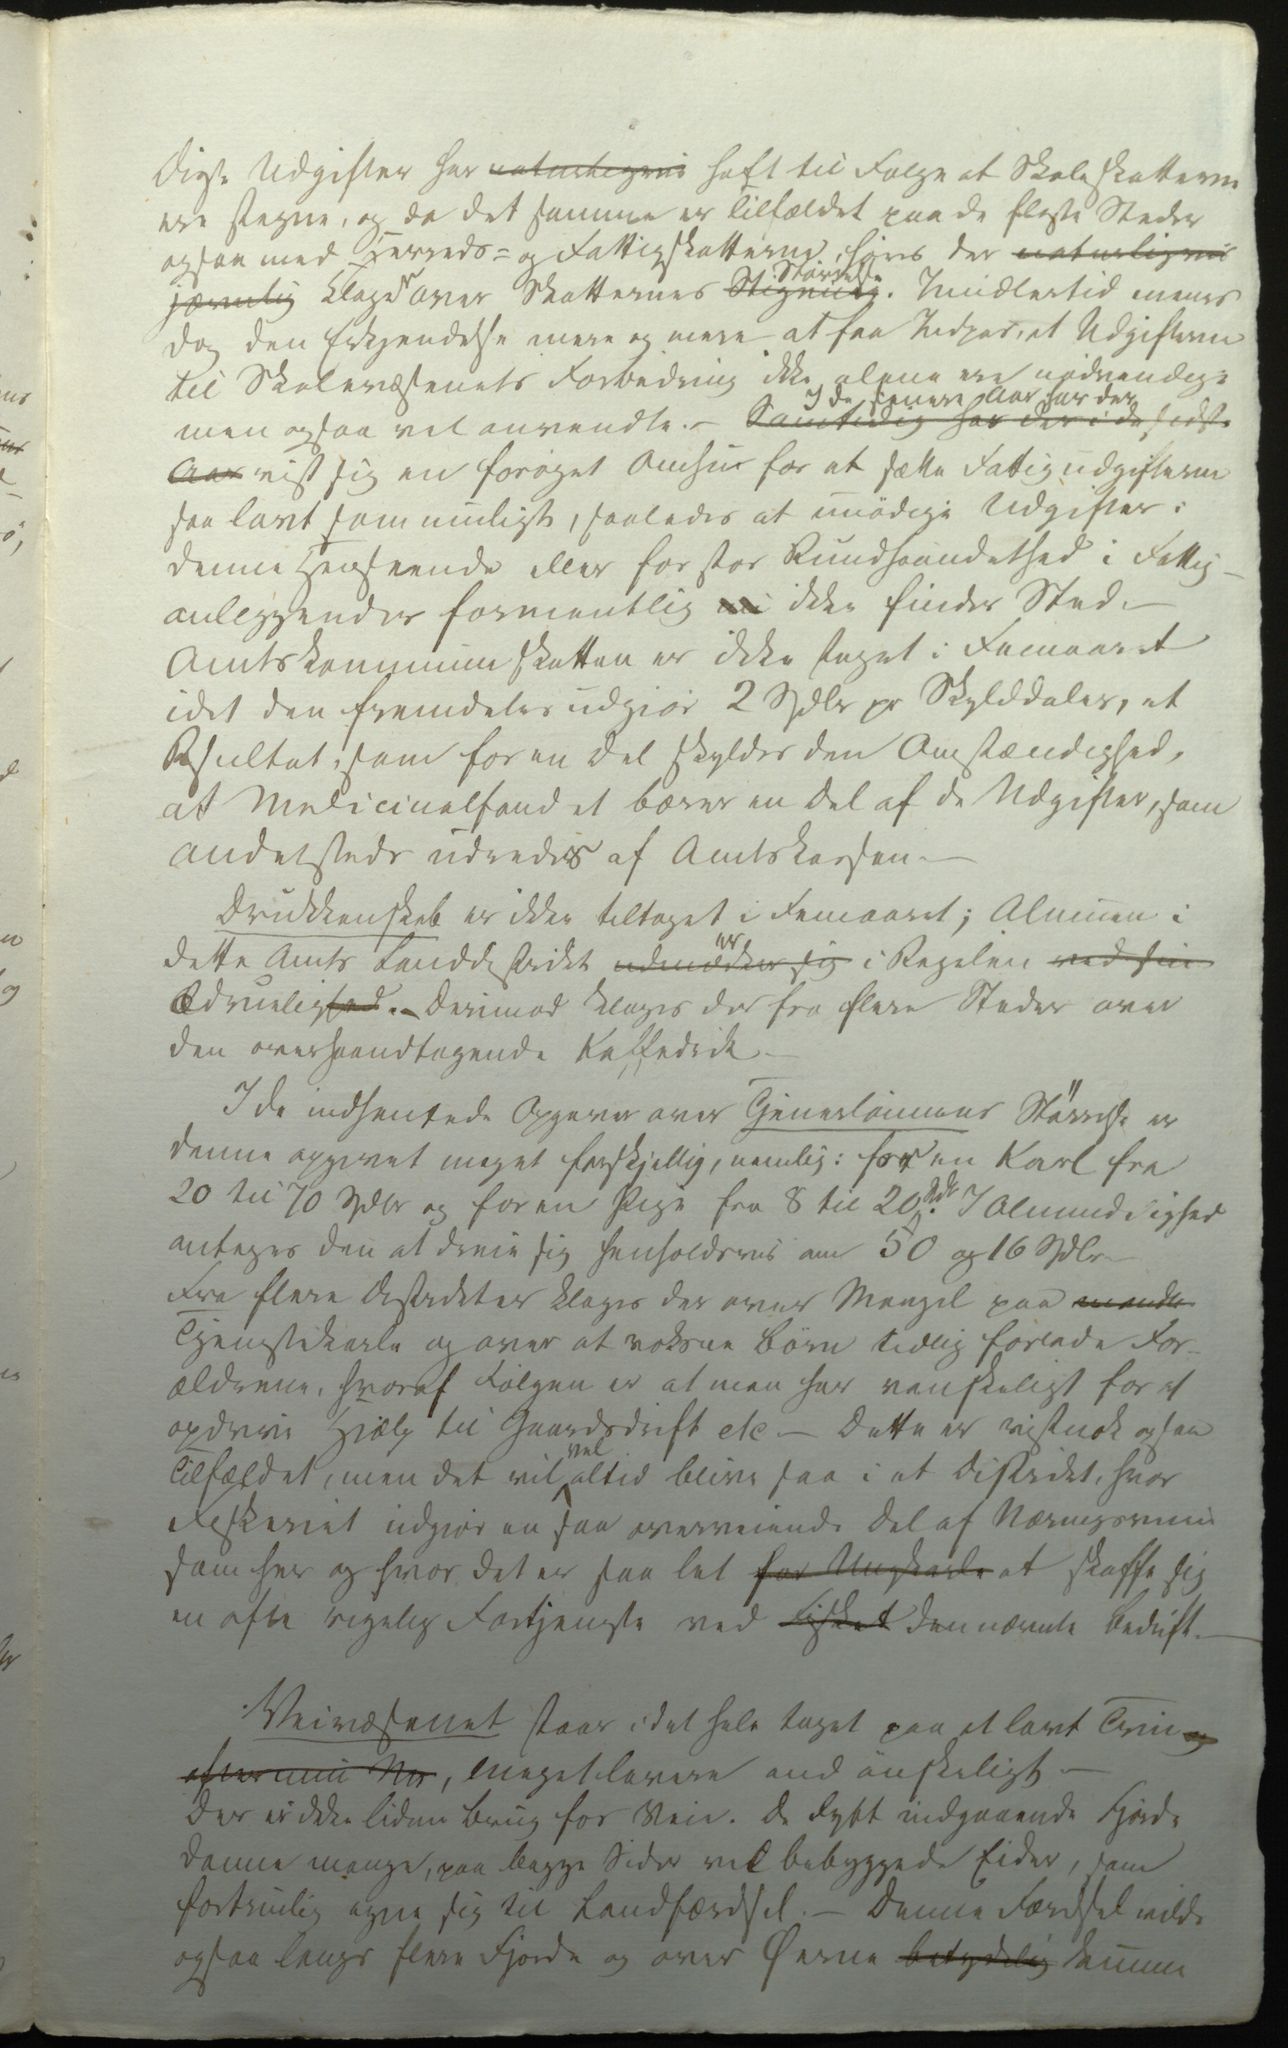 dige Udgifter har naturligvis haft til Følge at Skoleskatterne
ere stegne, og da det samme er Tilfældet paa de fleste Steder
ogsaa med Herreds= og Fattigskatterne, høres der naturligvis
jævnlig Klager over Skatternes Stigning Størrelse. Imidlertid menes
dog den Erkjendelse mere og mere at faa Indpas, at Udgifterne
til Skolevæsenets Forbedring ikke alene ere nødvendige
men ogsaa vel anvendte. – Samtidig har der i de sidste I de senere Aar har der
Aar vist sig en forøget Omhu for at sætte Fattigudgifterne
saa lavt som muligt, saaledes at unødige Udgifter i
denne Henseende eller for stor Rundhaandethed i Fattig-
anliggender formentlig ikke finder Sted. –
Amtskommuneskatten er ikke steget i Femaaret
idet den fremdeles udgjør 2 Spdlr pr Skylddaler, et
Resultat, som for en Del skyldes den Omstændighed,
at Medicinalfondet bærer en Del af de Udgifter, som
andetsteds udredes af Amtskassen. –
Drukkenskab er ikke tiltaget i Femaaret; Almuen i
dette Amts Landdistrikt udmærker sig er i Regelen ved sin
Ædruelighed. – Derimod klages der fra flere Steder over
den overhaandtagende Kaffedrik –
I de indhentede Opgaver over Tjenerlønnens Størrelse er
denne opgivet meget forskjellig, nemlig: for en Karl fra
20 til 70 Spdlr og for en Pige fra 8 til 20 Spdlr. I Almindelighed
antages den at dreie sig henholdsvis om 50 og 16 Spdlr –
Fra flere Distrikter klages der over Mangel paa
Tjenestekarle og over at voksne Børn tidlig forlade For-
ældrene, hvoraf Følgen er at man har vanskeligt for at
opdrive Hjælp til Gaardsdrift etc – Dette er vistnok ogsaa
Tilfældet, men det vil vel altid blive saa i et Distrikt, hvor
Fiskeriet udgjør en saa overveiende Del af Næringsveien
som her og hvor det er saa let for Ungkarle at skaffe sig
en ofte rigelig Fortjeneste ved Fisket den nævnte Bedrift. –
Veivæsenet staar i det hele taget paa et lavt Trin og
efter min , meget lavere end ønskeligt –
Der er ikke liden Brug for Veie. De dybt indgaaende Fjorde
danne mange, paa begge Sider vel bebyggede Eider, som
fortrinlig egne sig til Landfærdsel. – Denne Færdsel vilde
ogsaa langs flere Fjorde og over Øerne betydelig kunne